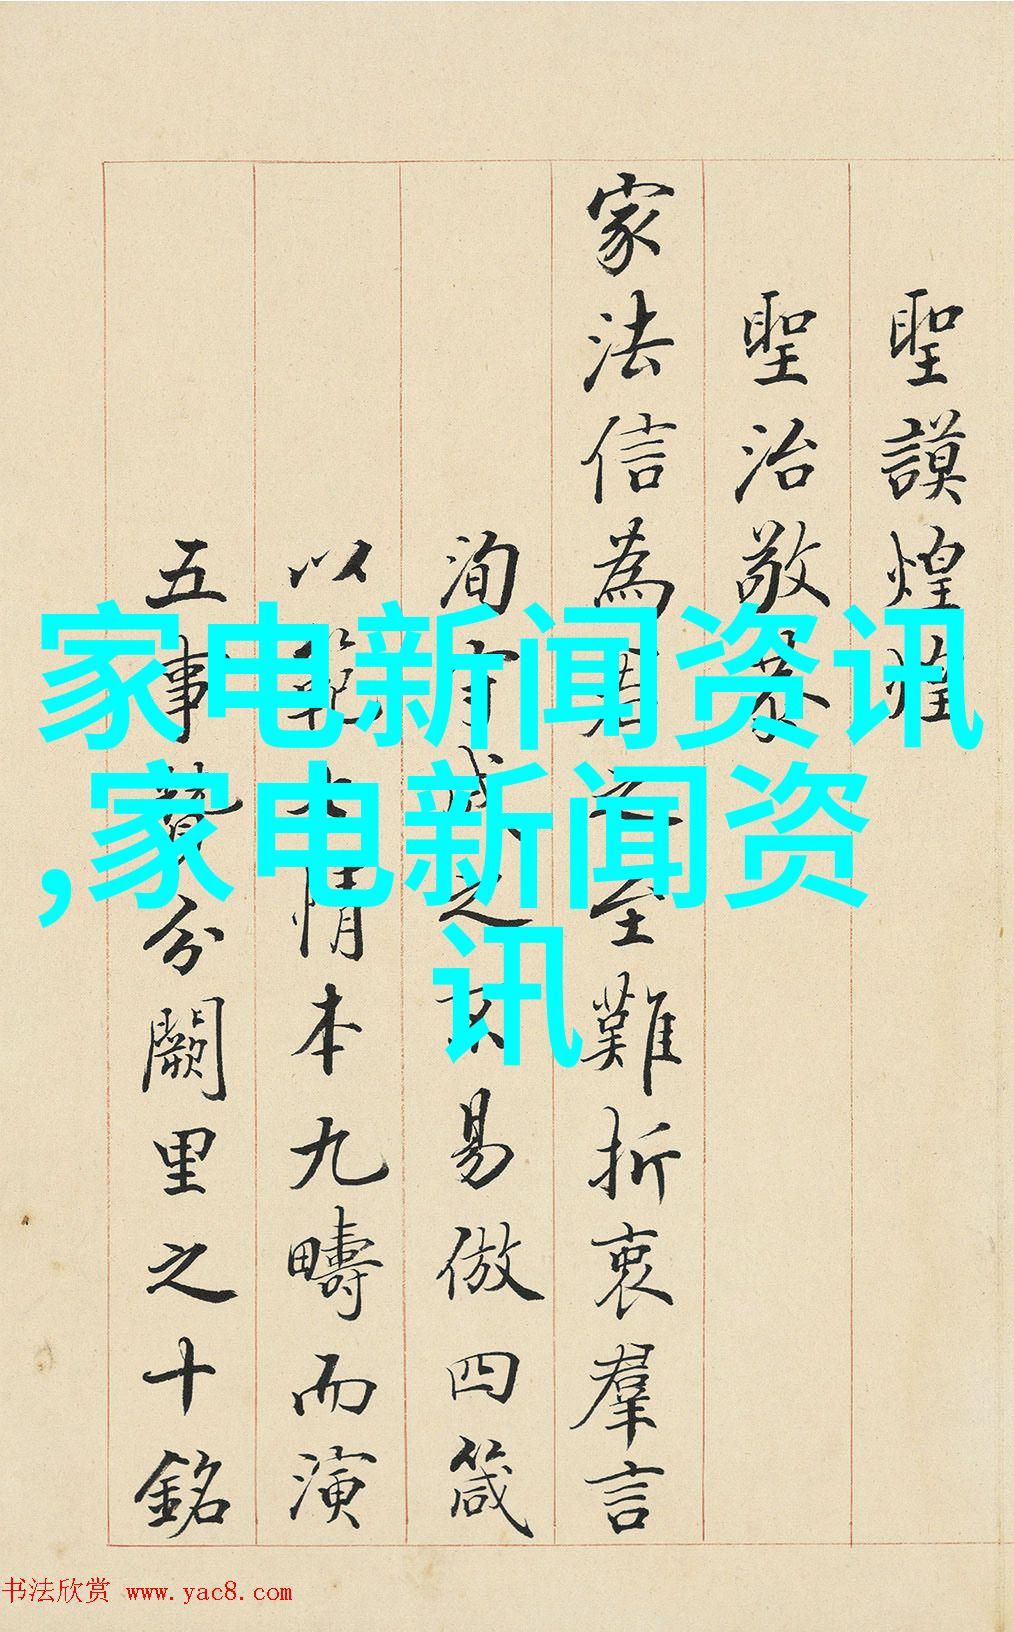 聖謨煌
聖治敬
家法信為之至難折衷羣言
洵守成之不易倣四箴
以範七情本九疇而演
五事贊分闕里之十銘
家电新闻资讯
,家电新闻资
讯
书法欣赏 www.yac8.com